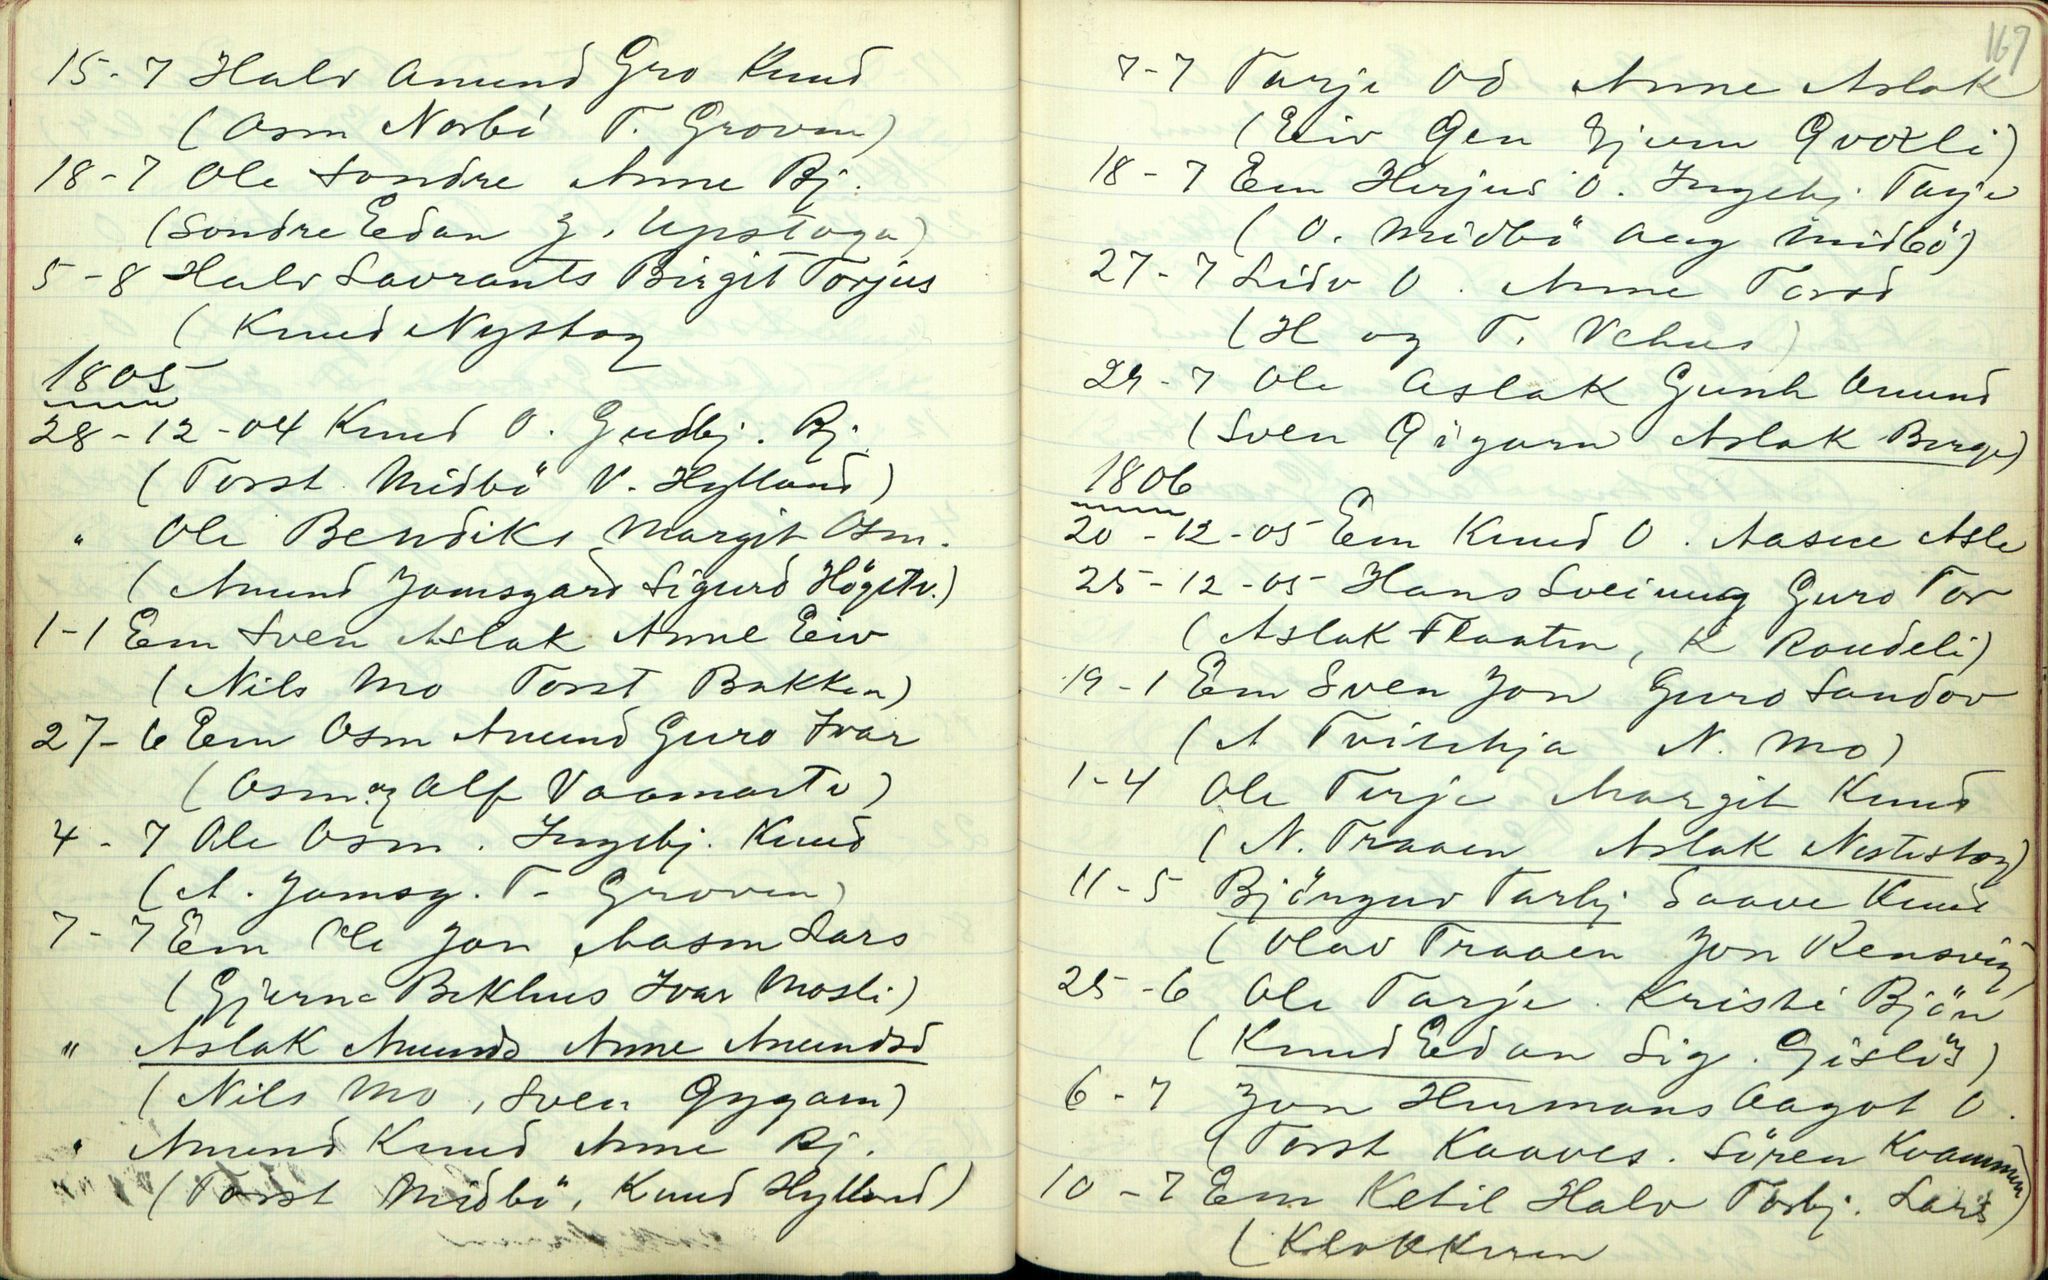 15-7 Halv Amund Gro Knud
(Osm Norbö T. Groven)
18-7 Ole Sondre Anne Bj.
(Sondre Edan J. Upstoga)
5-8 Halv Lavrants Birgit Torjus
(Knud Nystog
1805
28-12-04 Knud O. Gudbj. Bj.
(Torst. Midbö V. Hylland)
" Ole Bendiks Margit Osm.
(Amund Jamsgard Sigurd Högetv.)
1-1 Em Sven Aslak Anne Eiv
(Nils Mo Torst Bakken)
27-6 Em Osm Amund Guro Ivar
(Osm og Alf Vaamartv)
4-7 Ole Osm. Ingebj. Knud
(A. Jamsg. T. Groven)
7-7 Em Ole Jon Aasm Lars
(Gjerna Bekhus Ivar Mosli)
" Aslak Amunds Anne Amundsd
(Nils Mo, Sven Gygarn)
" Amund Knud Anne Bj.
(Torst Midbö, Knud Hylland)
167
7-7 Tarje Od Anne Aslak
(Eiv Gjern Qvoxli)
18-7 Em Herjus O. Ingebj. Tarje
(O. Midbö Aag Midbö)
27-7 Lidv O. Anne Torod
(H og T. Vehus)
29-7 Ole Aslak Gunh Amund
(Sven Gigarn Aslak Berge)
1806
20-12-05 Em Knud O. Aasne Asle
25-12-05 Hans Sveinung Guro Tor
(Aslak Flaatin, K Roudeli)
19-1 Em Sven Jon Guro Sandov
(A Tvitehja N. Mo)
1-4 Ole Terje Margit Knud
(N. Traaen Aslak Nestestog)
11-5 Bjönguv Tarbj Saave Knud
(Olav Traaen Jon Rensvig)
25-6 Ole Tarje. Kristi Bjön
(Knud Edan Sig. Gislöy)
6-7 Jon Hermans Aagot O.
(Torst Kaaves. Sören Kvammen)
10-7 Em Ketil Halv Torbj. Lars
(Klokkeren